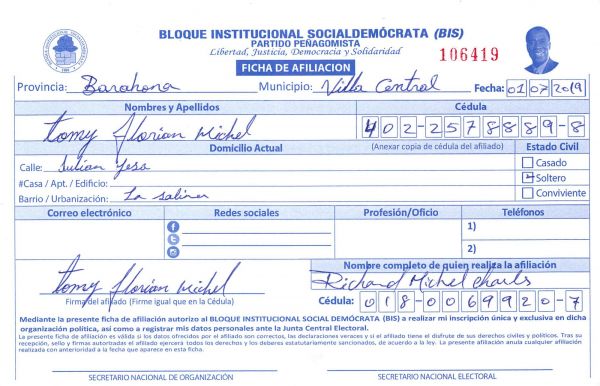 BLOQUE INSTITUCIONAL SOCIALDEMÓCRATA (BIS)
PARTIDO PEÑAGOMISTA
Libertad, Justicia, Democracia y Solidaridad
106419
FICHA DE AFILIACION
Provincia: Barahona Municipio: Villa Central Fecha: 01 07 2019
Nombres y Apellidos Cédula
tomy florian Michel 402-2578889-8
Domicilio Actual (Anexar copia de cédula del afiliado) Estado Civil
Calle: Julian Yesa Casado
#Casa / Apt. / Edificio: Soltero
Barrio / Urbanización: La salina Conviviente
Correo electrónico Redes sociales Profesión/Oficio Teléfonos
1)
2)
tomy florian Michel
Firma del afiliado (Firme igual que en la Cédula)
Nombre completo de quien realiza la afiliación
Richard Michel Charls
Cédula: 018-0069920-7
Mediante la presente ficha de afiliación autorizo al BLOQUE INSTITUCIONAL SOCIAL DEMÓCRATA (BIS) a realizar mi inscripción única y exclusiva en dicha
organización política, así como a registrar mis datos personales ante la Junta Central Electoral.
La presente ficha de afiliación es válida si los datos ofrecidos por el afiliado son correctos, las declaraciones veraces y si el afiliado tiene el disfrute de sus derechos civiles y políticos. Tras su
recepción, sello y firmas autorizadas el afiliado ejercerá todos los derechos y los deberes estatutariamente sancionados, de acuerdo a la ley. La presente afiliación anula cualquier afiliación
realizada con anterioridad a la fecha que aparece en esta ficha.
SECRETARIO NACIONAL DE ORGANIZACIÓN SECRETARIO NACIONAL ELECTORAL